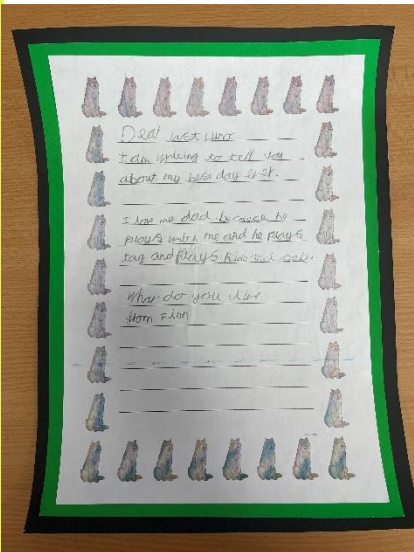 Dear last
I am writing to tell you
about my best day ever.
I love me dad because he
plays with me and he plays
tag and plays hide and seek.
What do you
from